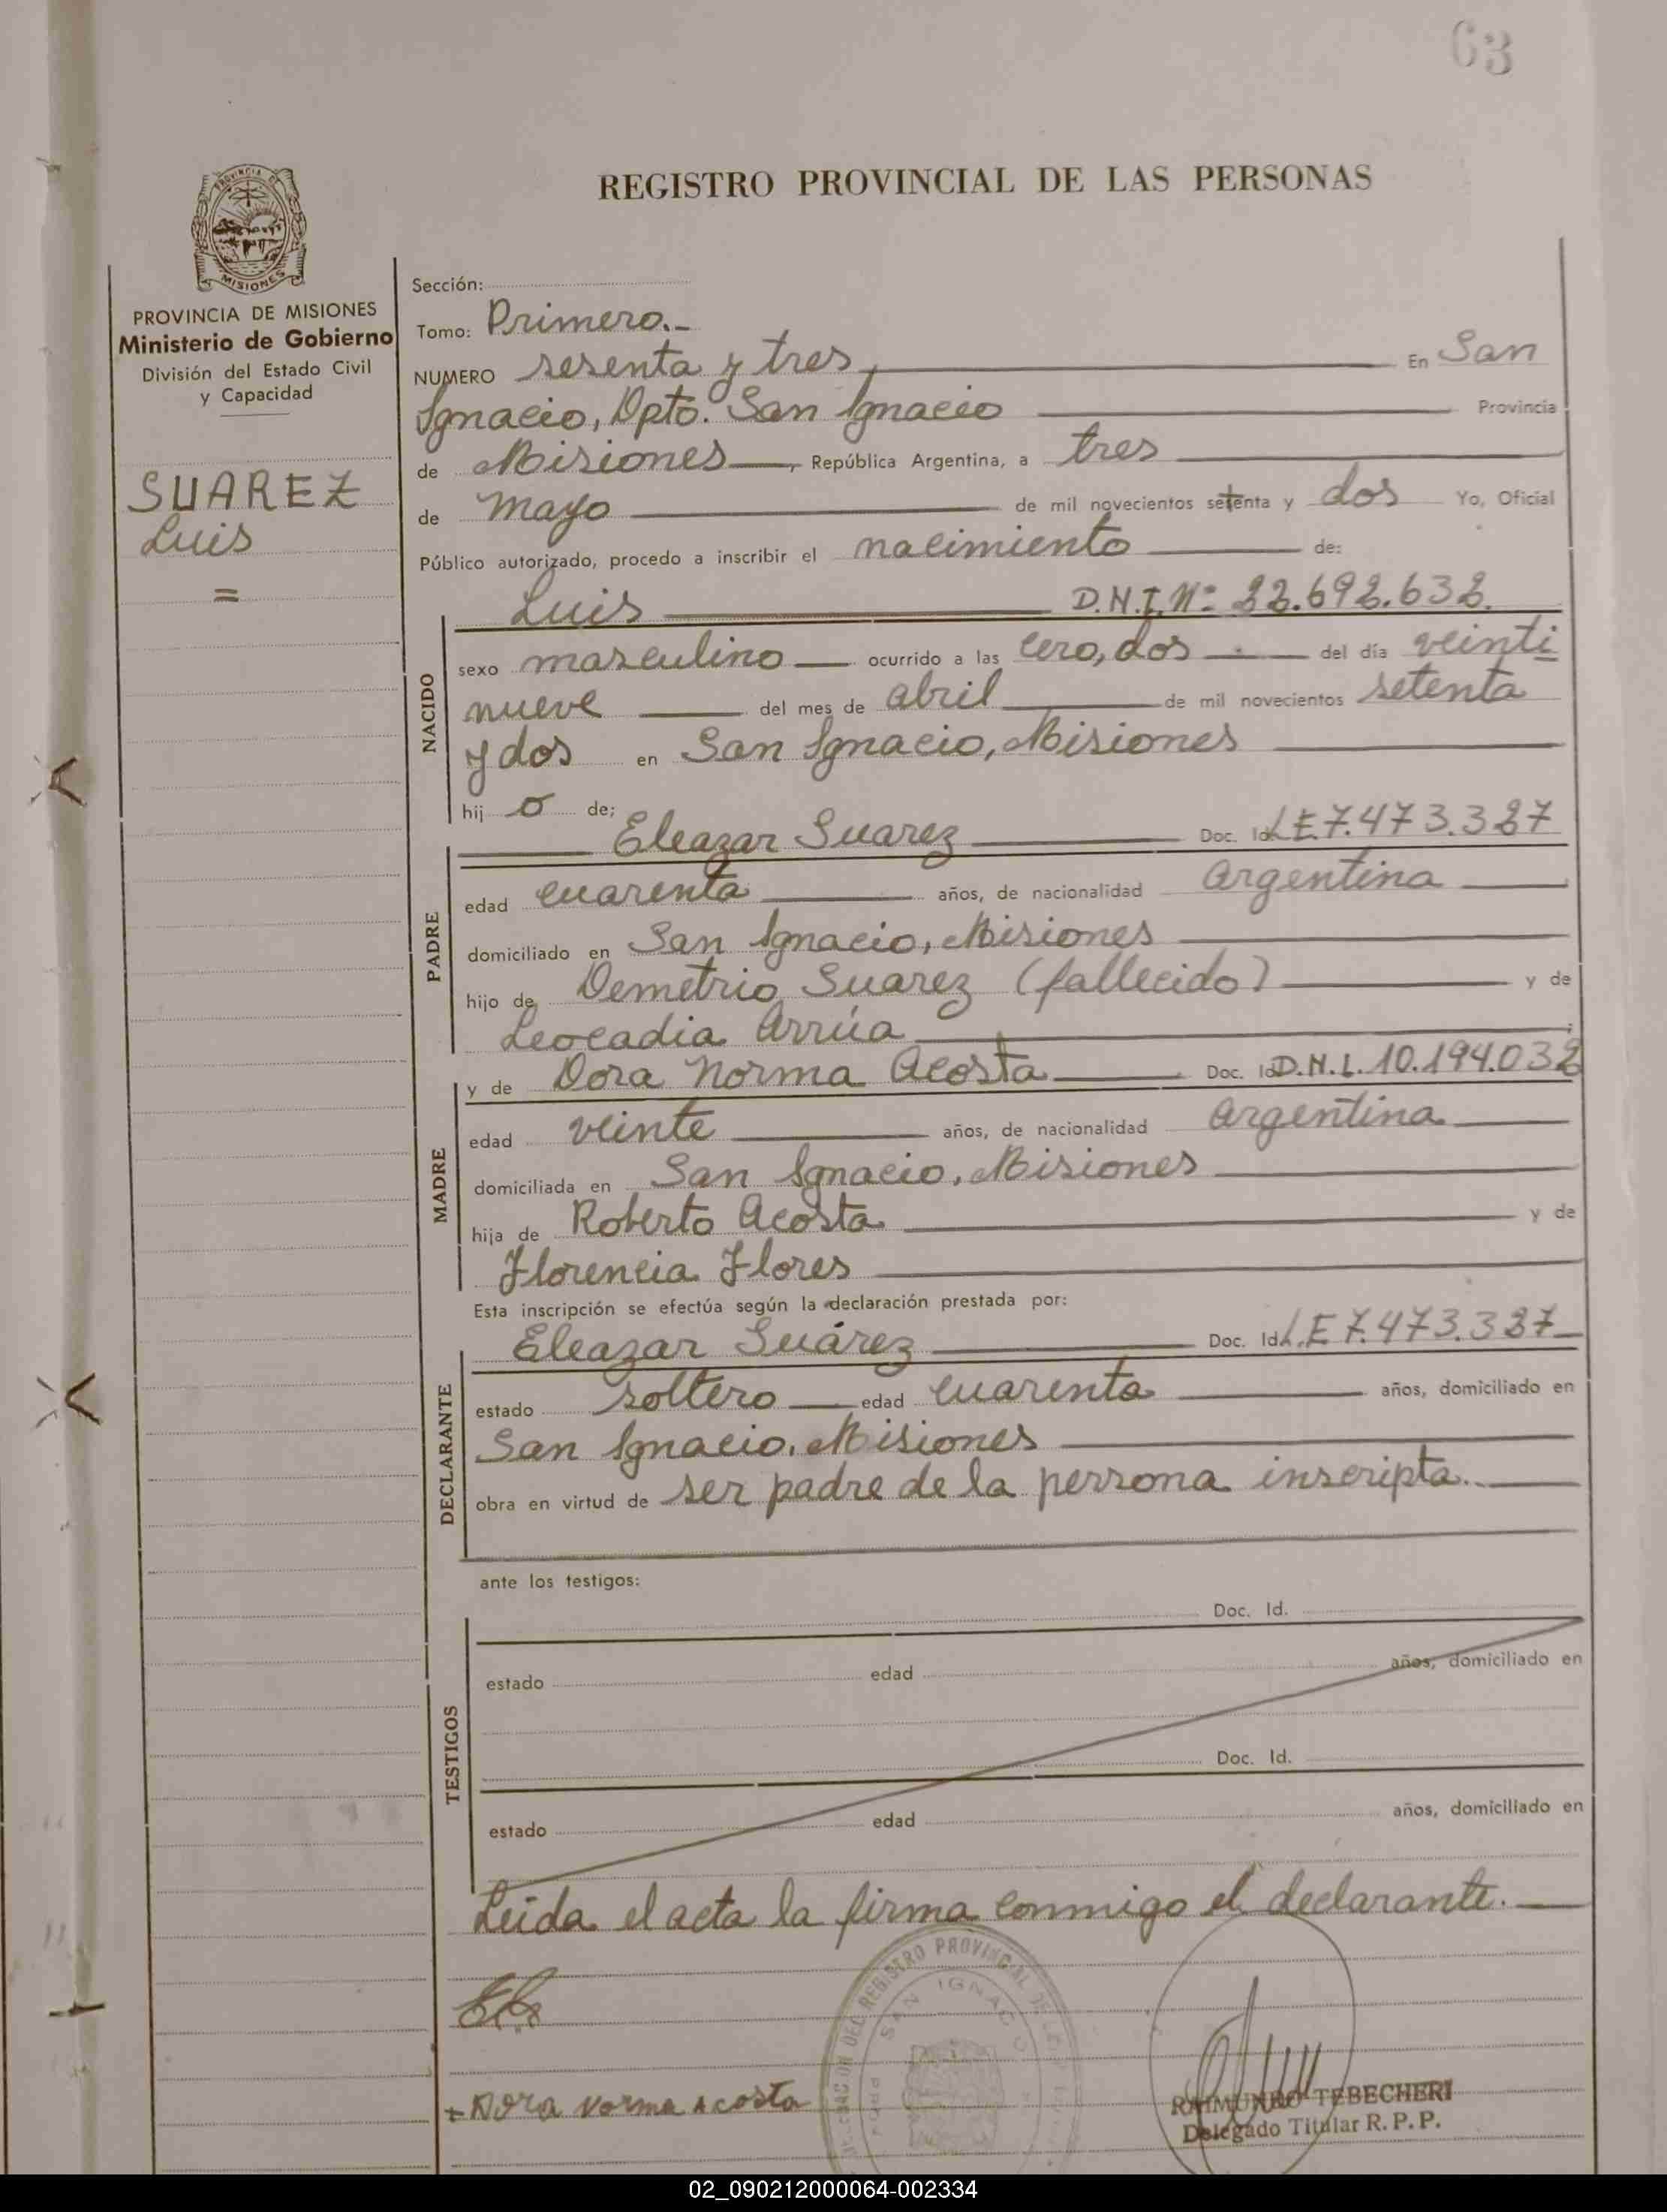 63
REGISTRO PROVINCIAL DE LAS PERSONAS
PROVINCIA DE MISIONES
Ministerio de Gobierno
División del Estado Civil
y Capacidad
SUAREZ
Luis
=
Sección:
Tomo: Primero.-
NUMERO sesenta y tres, En San
Ignacio, Dpto. San Ignacio Provincia
de Misiones, República Argentina, a tres
de mayo de mil novecientos setenta y dos Yo, Oficial
Público autorizado, procedo a inscribir el nacimiento de:
Luis D.N.I. Nº 22.692.632.
NACIDO
sexo masculino ocurrido a las cero, dos del día veinti
nueve del mes de abril de mil novecientos setenta
y dos en San Ignacio, Misiones
hij o de;
Eleazar Suarez Doc. Id. LE 7.473.327
PADRE
edad cuarenta años, de nacionalidad argentina
domiciliado en San Ignacio, Misiones
hijo de Demetrio Suarez (fallecido) y de
Leocadia Arrúa
y de Dora Norma Acosta Doc. Id. D.N.I. 10.194.032
MADRE
edad veinte años, de nacionalidad argentina
domiciliada en San Ignacio, Misiones
hija de Roberto Acosta y de
Florencia Flores
Esta inscripción se efectúa según la declaración prestada por:
Eleazar Suárez Doc. Id. L.E 7.473.327
DECLARANTE
estado soltero edad cuarenta años, domiciliado en
San Ignacio, Misiones
obra en virtud de ser padre de la persona inscripta.
ante los testigos:
Doc. Id.
TESTIGOS
estado edad años, domiciliado en
Doc. Id.
estado edad años, domiciliado en
Leida el acta la firma conmigo el declarante.
Dora Norma Acosta
REGISTRO PROVINCIAL DE
SAN IGNACIO
RAIMUNDO TEBECHERI
Delegado Titular R. P. P.
02_090212000064-002334